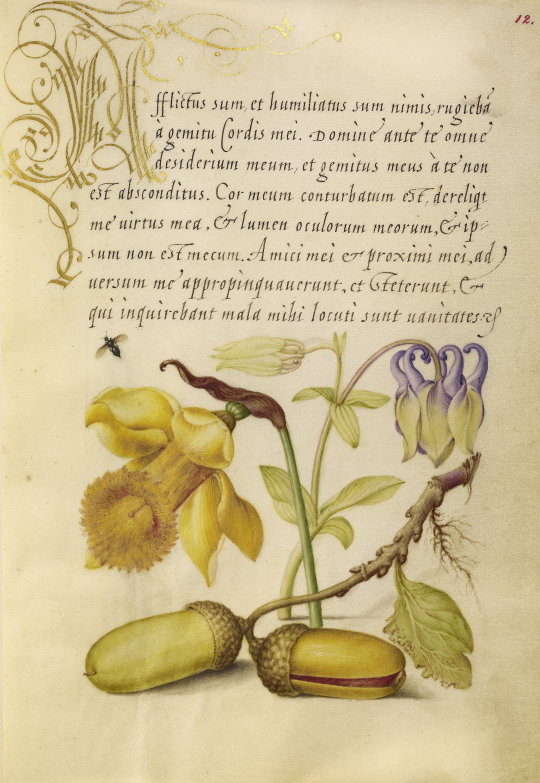 12.
Afflictus sum, et humiliatus sum nimis, rugiebā
à gemitu Cordis mei. Domine ante te omne
desiderium meum, et gemitus meus à te non
est absconditus. Cor meum conturbatum est, dereliqt
me uirtus mea, & lumen oculorum meorum, & ip-
sum non est mecum. Amici mei & proximi mei, ad
uersum me appropinquauerunt, et steterunt, &
qui inquirebant mala mihi locuti sunt uanitates.